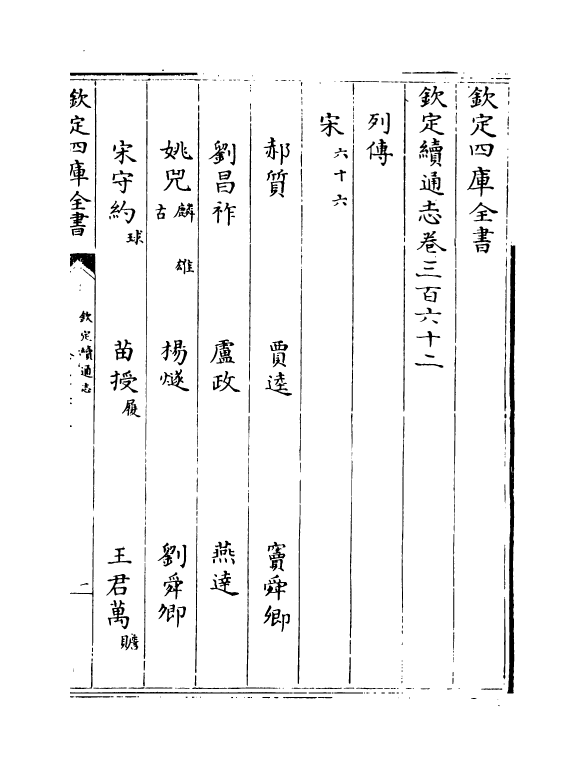 欽定四庫全書
欽定續通志卷三百六十二
列傳
宋 六十六
郝質 賈逵 竇舜卿
劉昌祚 盧政 燕達
姚兕 麟 雄 古 楊燧 劉舜卿
宋守約 球 苗授 履 王君萬 贍
欽定四庫全書
欽定續通志